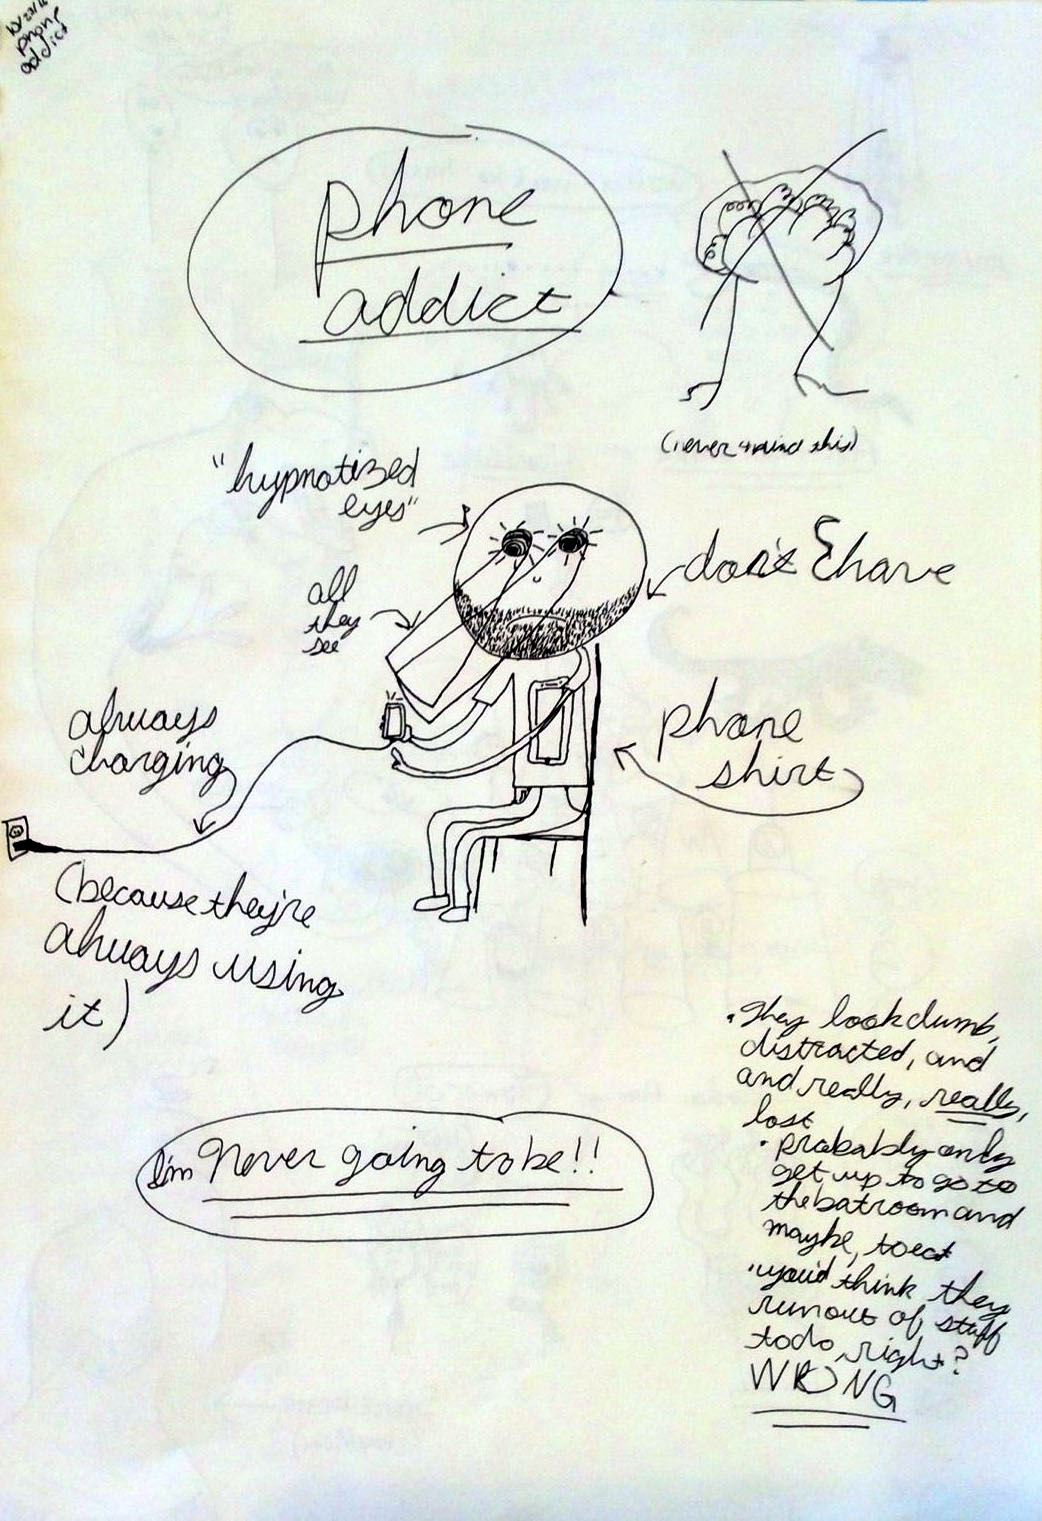 phone
addict
phone
addict
(never mind this)
"hypnotized
eyes"
don't shave
all
they
see
always
charging
phone
shirt
(because they're
always using
it)
• They look dumb,
distracted, and
and really, really,
lost
• probably only
get up to go to
the batroom and
maybe, to eat
• you'd think they
run out of stuff
to do, right?
WRONG
I'm Never going to be!!